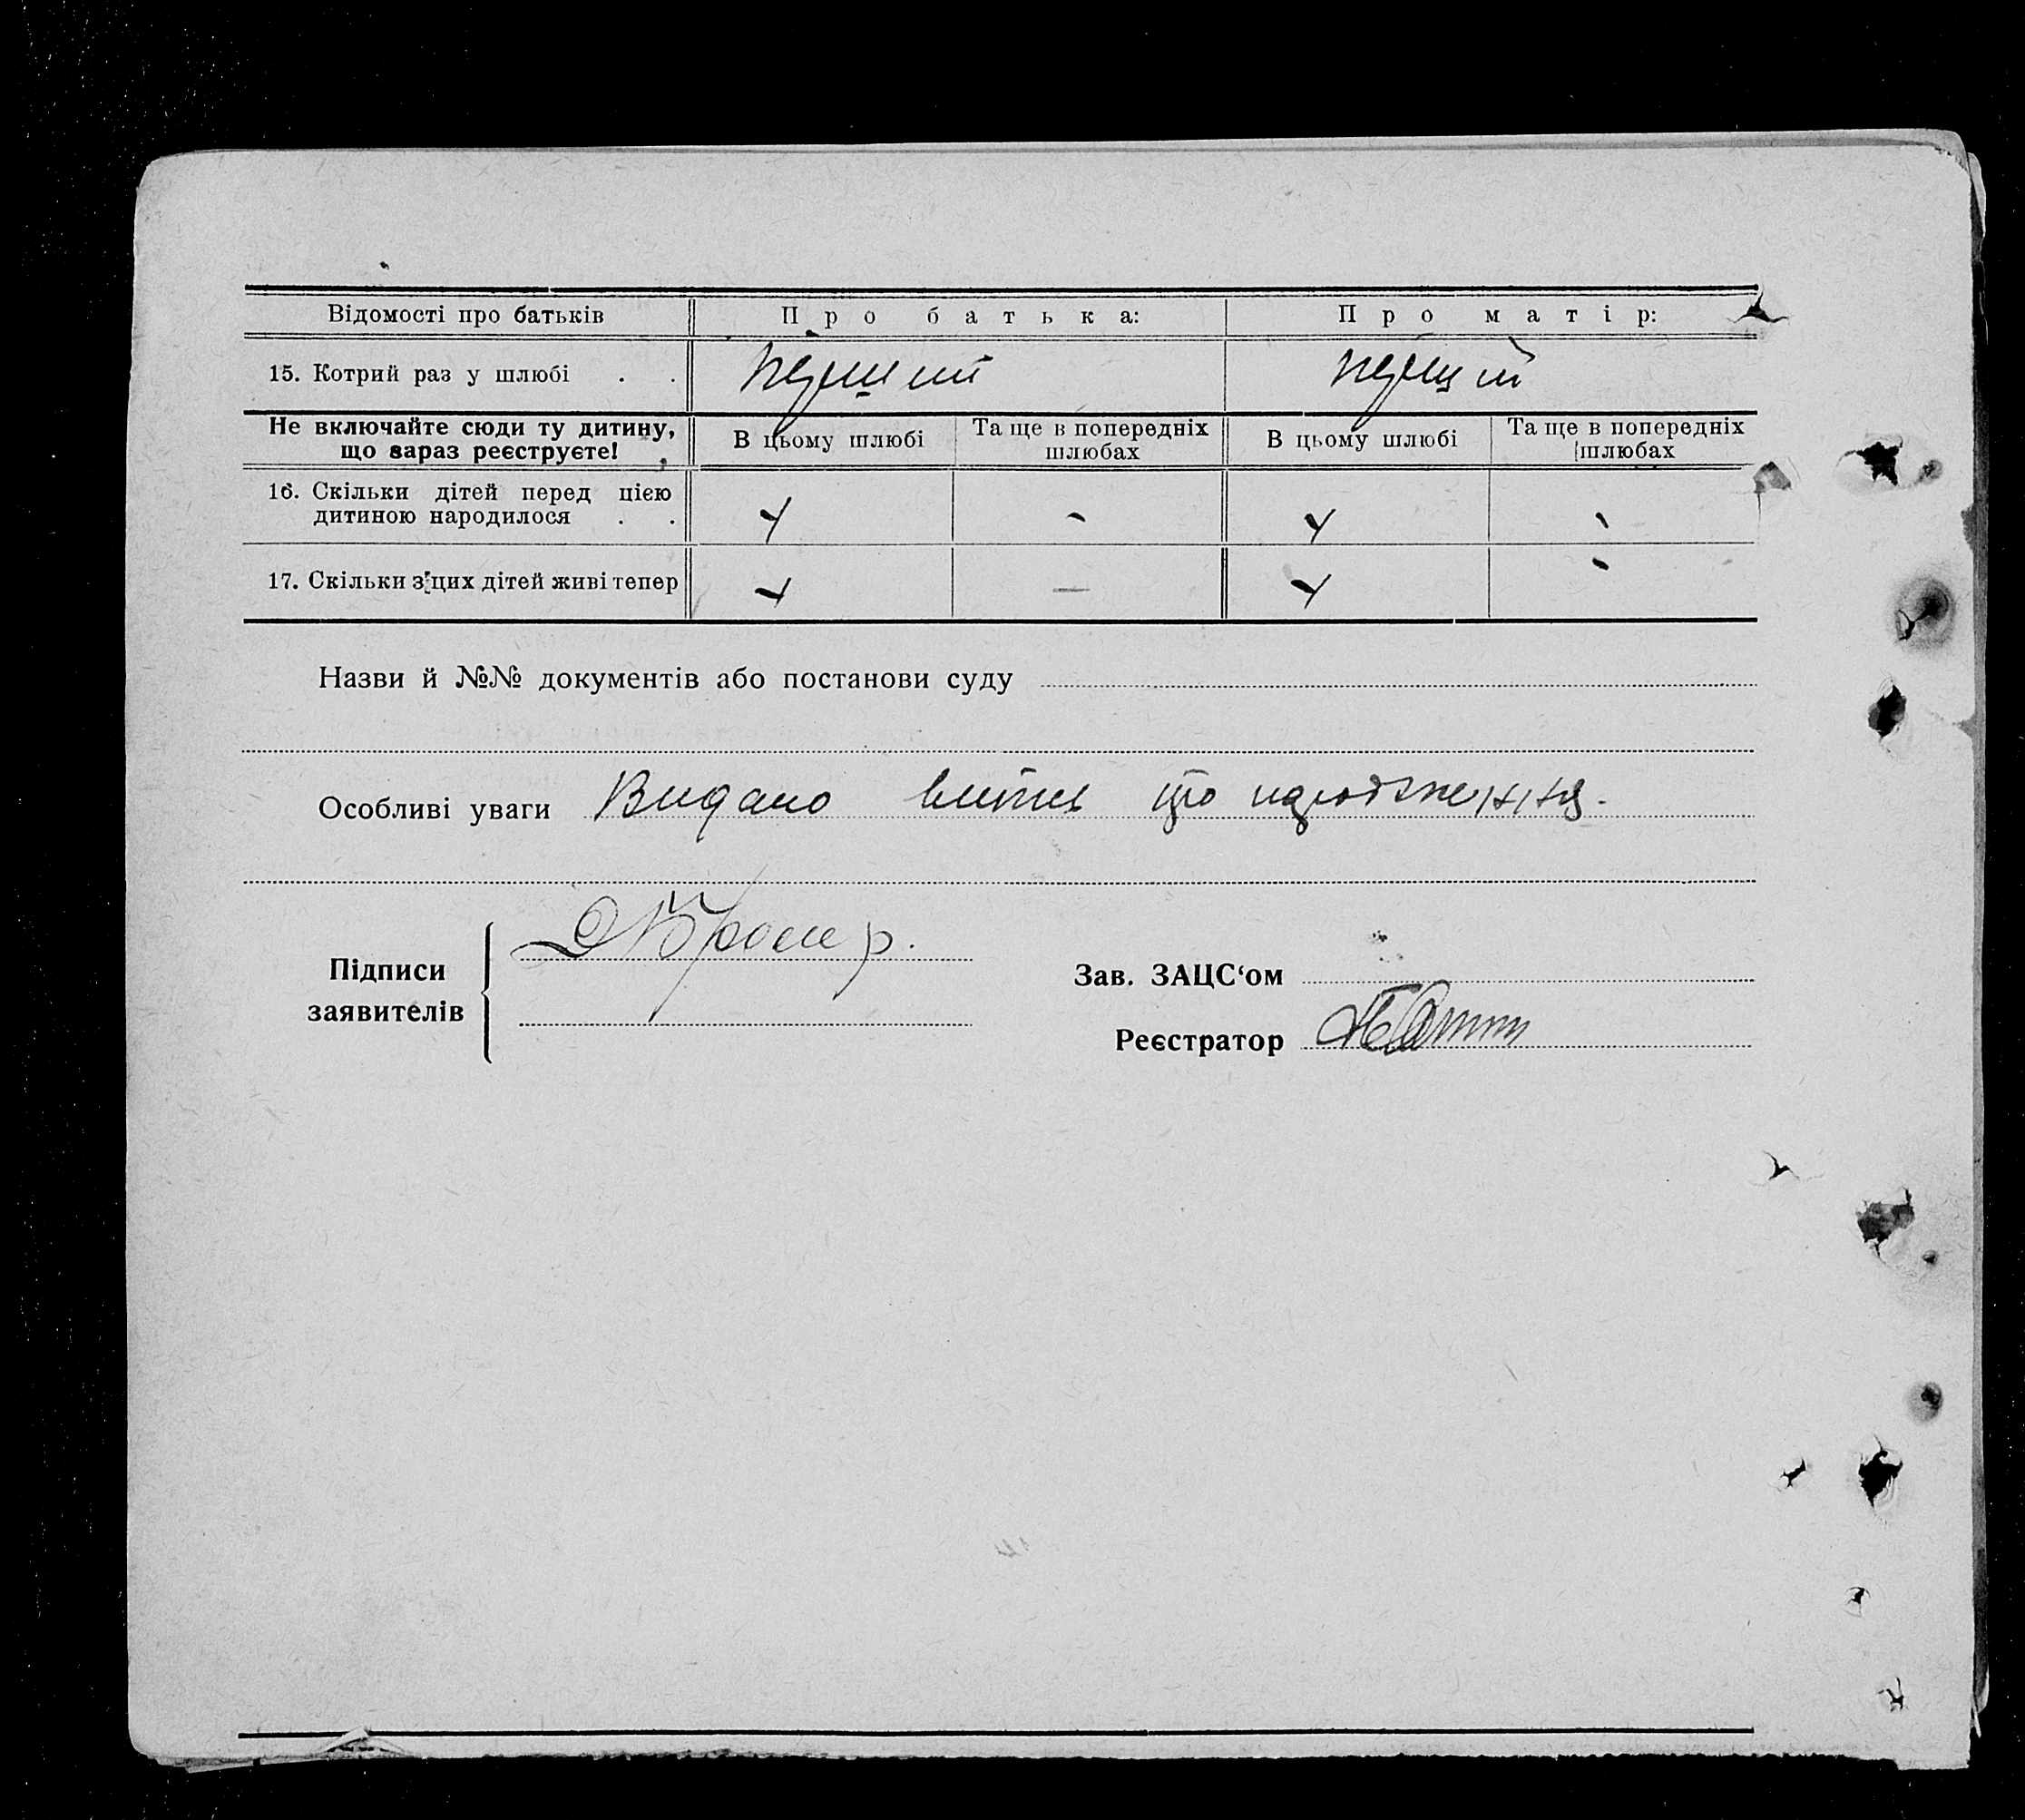 Відомості про батьків Про батька: Про матір:
15. Котрий раз у шлюбі . . перший перший
Не включайте сюди ту дитину, що зараз реєструєте! В цьому шлюбі Та ще в попередніх шлюбах В цьому шлюбі Та ще в попередніх шлюбах
16. Скільки дітей перед цією
дитиною народилося . . 4 - 4 -
17. Скільки з цих дітей живі тепер 4 — 4 -
Назви й №№ документів або постанови суду
Особливі уваги Видано витяг про народження.
Підписи
заявителів
Зав. ЗАЦС‘ом
Реєстратор